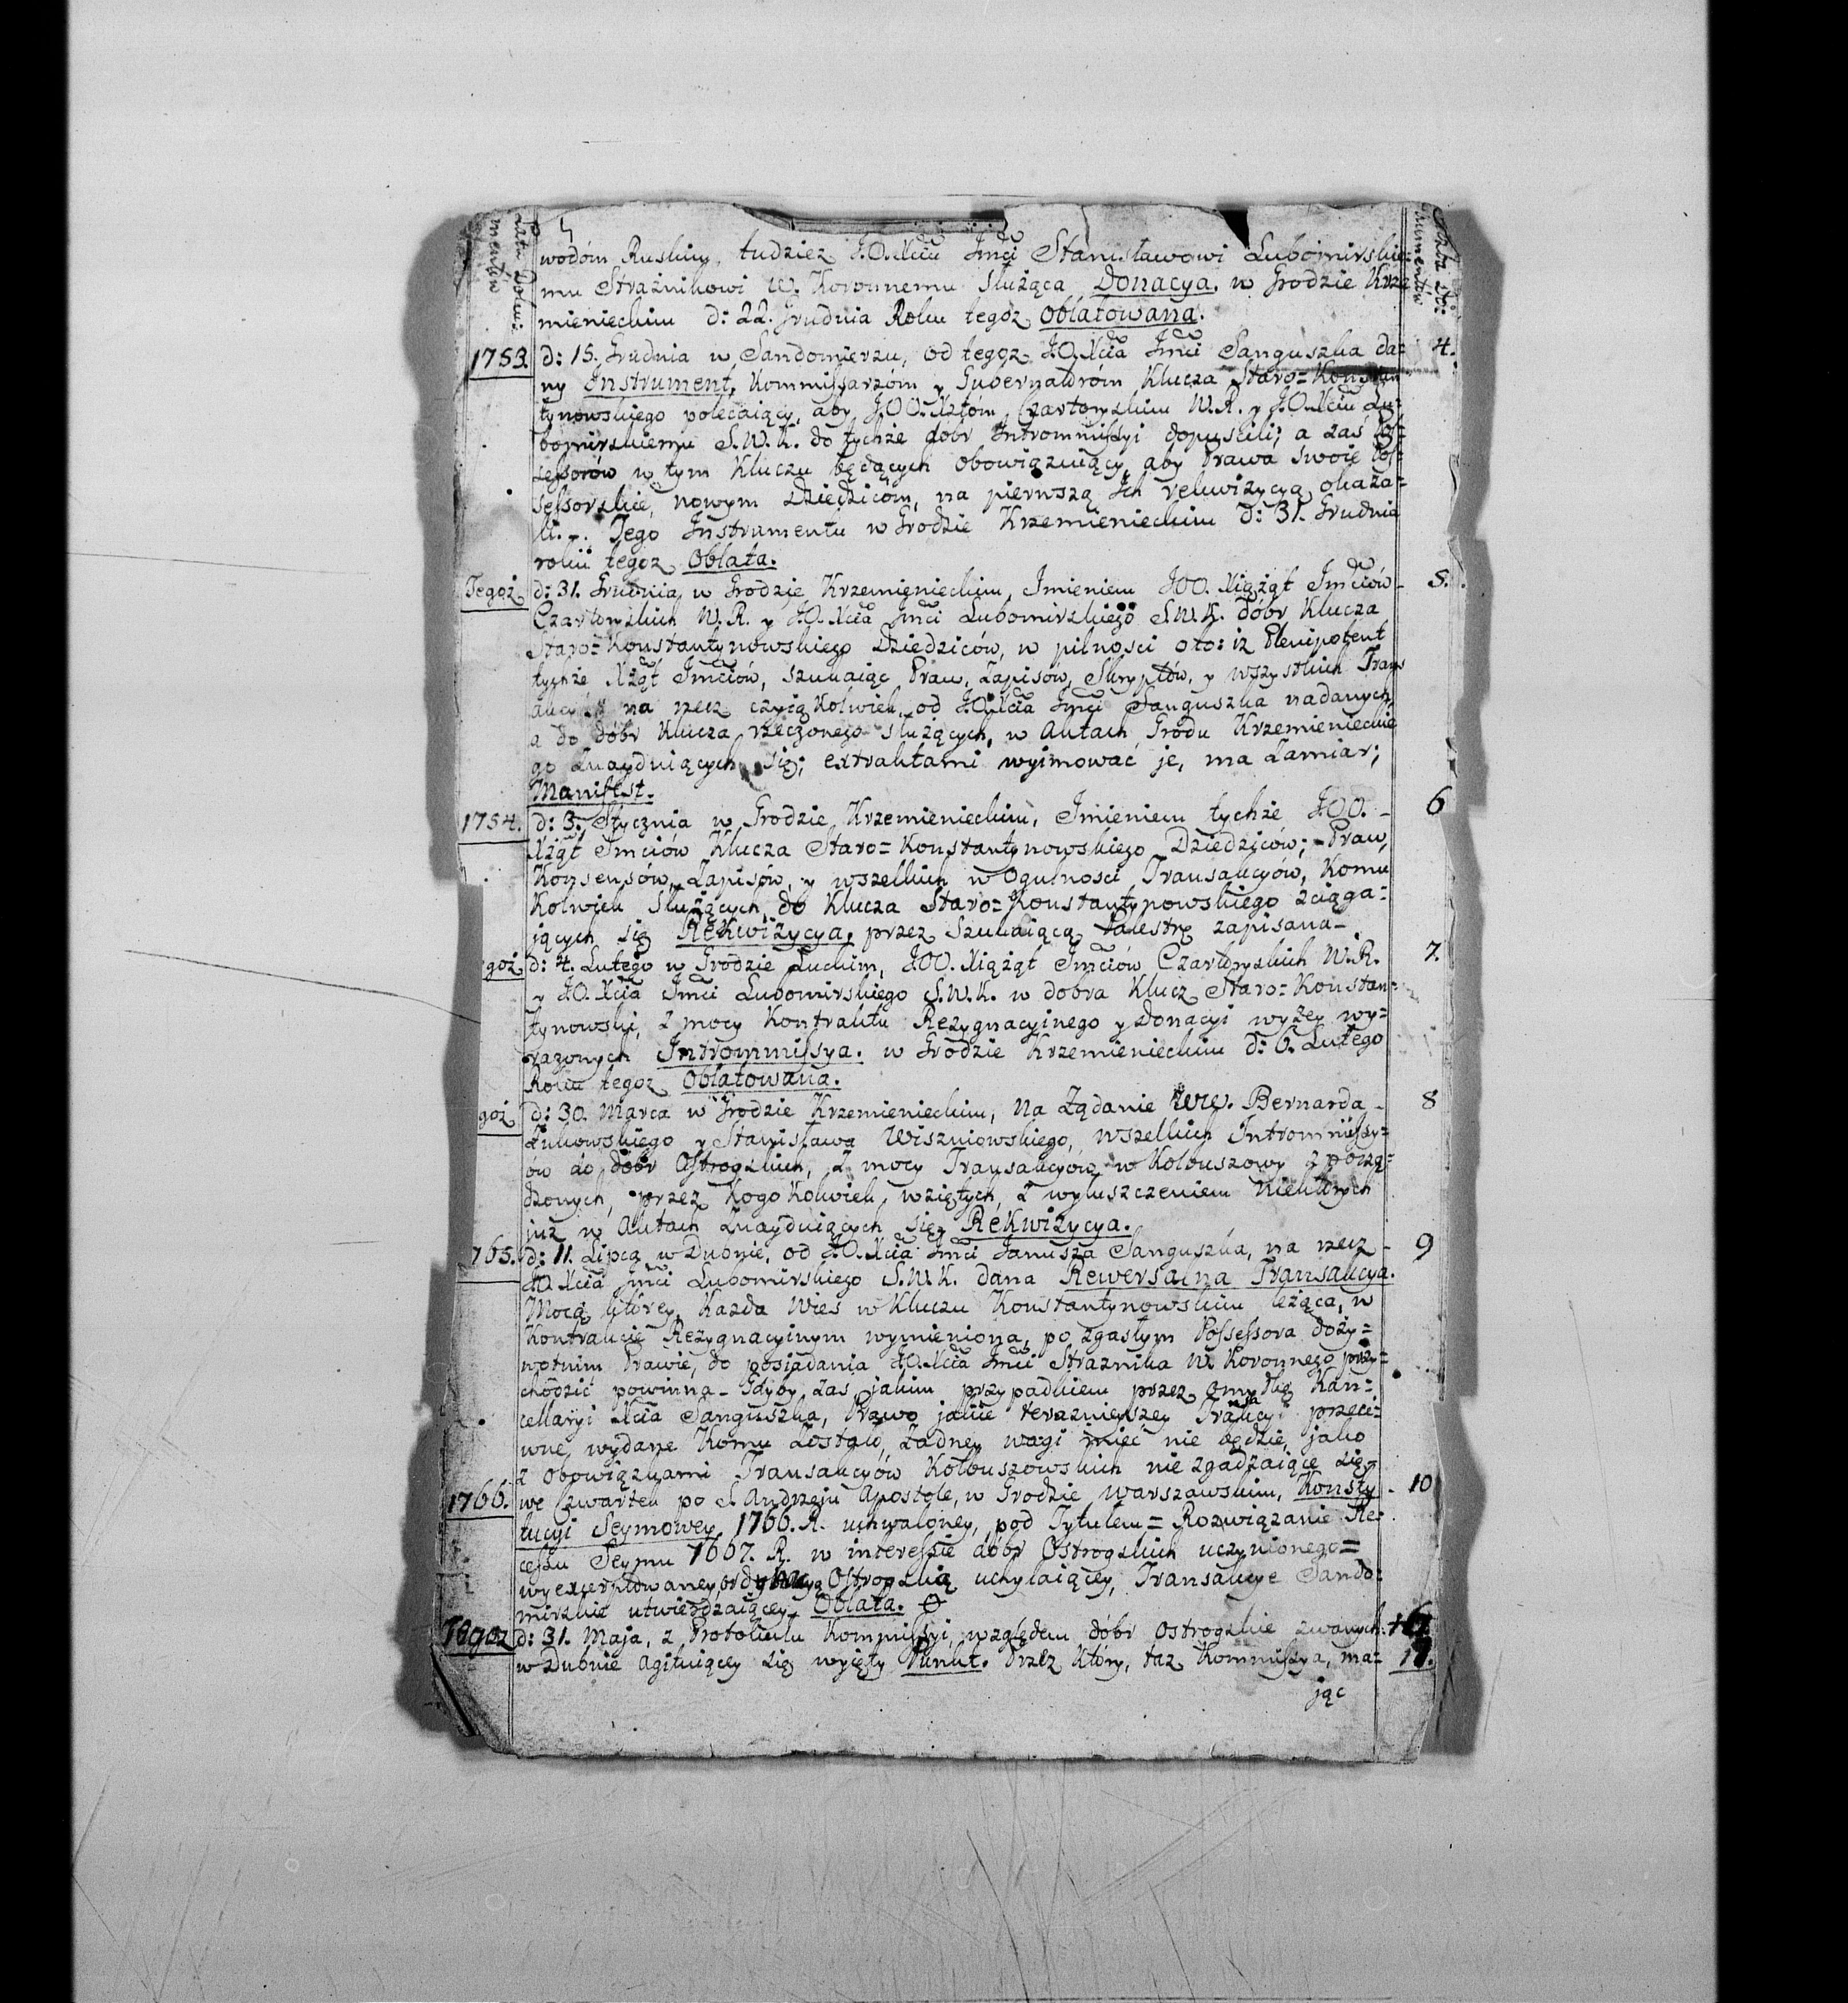 Data Dokumentów
Liczba Dokumentów
wodóm Ruskiey, tudzież J.O. Xciu Jmći Stanisławowi Lubomirskie=
mu Strażnikowi W. Koronnemu służąca Donacya. w Grodzie Krze
mienieckim d: 22. Grudnia Roku tegoż Oblatowana.
1753. d: 15. Grudnia w Sandomierzu, od tegoż J.O. Xcia Jmći Sanguszka da= 4.
ny Instrument, Kommissarzóm y Gubernatoróm Klucza Staro=Konstan
tynowskiego polecaiący, aby J.O.O. Xżtóm Czartoryskim W.R. y J.O. Xciu Lu=
bomirskiemu S.W.K. do tychże dóbr Intromissyi dopuścili; a zaś Pos=
sessorów w tym Kluczu będących obowiązuiący, aby Prawa swoie Pos=
sessorskie, nowym Dziedzicóm, na pierwszą Ich rekwizycyą okaza=
li. - Tego Instrumentu w Grodzie Krzemienieckim d: 31. Grudnia
roku tegoż Oblata.
Tegoż d: 31. Grudnia, w Grodzie Krzemienieckim, Imieniem J.O.O. Xiążąt Jmćiów - 5.
Czartoryskich W.R. y J.O. Xcia Jmći Lubomirskiego S.W.K. dóbr Klucza
Staro=Konstantynowskiego Dziedziców, w pilności oto: iż Plenipotent
tychże Xżąt Jmćiów, szukaiąc Praw, Zapisów, Skryptów, y wszystkich Trans
akcyi na rzecz czyiąkolwiek, od J.O. Xcia Jmći Sanguszka nadanych,
a do dóbr Klucza rzeczonego służących, w Aktach Grodu Krzemienieckie
go Znayduiących się; extraktami wyimować je, ma Zamiar;
Manifest.
1754. d: 3. Stycznia w Grodzie Krzemienieckim, Imieniem tychże J.O.O. - 6
Xżąt Jmćiów Klucza Staro=Konstantynowskiego Dziedziców; - Praw,
Konsensów, Zapisów, y wszelkich w Ogulności Transakcyów, Komu
Kolwiek służących, do Klucza Staro=Konstantynowskiego ściąga=
jących się Rekwizycya, przez Szukaiącą Palestrę zapisana -.
goż d: 4. Lutego w Grodzie Łuckim, J.O.O. Xiążąt Jmćiów Czartoryskich W.R. 7.
y J.O. Xcia Jmći Lubomirskiego S.W.K. w dobra Klucz Staro=Konstan=
tynowski, z mocy Kontraktu Rezygnacyinego y Donacyi wyżey wy=
rażonych Intrommissya. w Grodzie Krzemienieckim d: 6. Lutego
Roku tegoż Oblatowana.
goż d: 30. Marca w Grodzie Krzemienieckim, na Żądanie WW. Bernarda - 8
Żukowskiego y Stanisława Wiszniowskiego, wszelkich Intromissy=
ów do dóbr Ostrogskich, z mocy Transakcyów w Kolbuszowy zporzą=
dzonych, przez Kogokolwiek, wziętych, z wyłuszczeniem niektórych
już w Aktach Znayduiących się, Rekwizycya.
765. d: 11. Lipca w Dubnie, od J.O. Xcia Jmći Janusza Sanguszka, na rzecz - 9
J.O. Xcia Jmći Lubomirskiego S.W.K. dana Rewersalna Transakcya.
Mocą którey, Każda Wieś w Kluczu Konstantynowskim leżąca, w
Kontrakcie Rezygnacyinym wymieniona, po zgasłym Possessora doży=
wotnim Prawie, do posiadania J.O. Xcia Jmći Strażnika W. Koronnego przy=
chodzić powinna - Gdyby zaś, jakim przypadkiem przez omyłkę Kan=
cellaryi Xcia Sanguszka, Prawo jakie teraznieyszey Transakcyi przeci=
wne, wydane Komu Zostało, Żadney wagi mieć nie będzie, jako
z obowiązkami Transakcyów Kolbuszowskich nie zgadzaiące się.
1766. we Czwartek po S. Andrzeju Apostole, w Grodzie Warszawskim, Konsty - 10
tucyi Seymowey 1766. R. uchwaloney, pod Tytułem = Rozwiązanie Re=
cessu Seymu 1667. R. w interessie dóbr Ostrogskich uczynionego =
wyexcerptowaney, ordynacyą Ostrogską uchylaiącey, Transakcye Sando=
mirskie utwierdzaiącey Oblata.
Tegoż d: 31. Maja, z Protokułu Kommissyi, względem dóbr Ostrogskie zwanych
w Dubnie Agituiącey się wyięty Punkt. Przez Który, taż Kommissya, ma= 11.
jąc